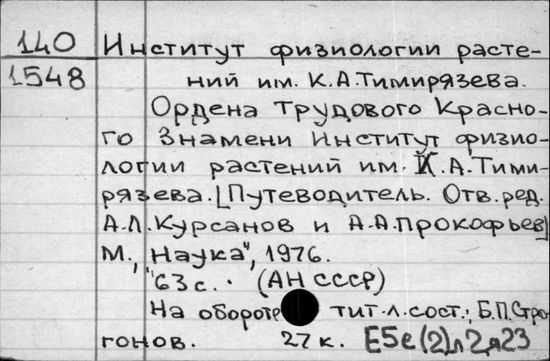 140
1548
Институт физиологии расте-
ний им. К.А.Тимирязева.
Ордена Трудового Красно-
го Знамени Институт физио-
логии растений им. К.А.Тими-
рязева. [Путеводитель. Отв.ред.
А.Л.Курсанов и А.А.Прокофьев]
М., "Наука", 1976.
63с. (АН СССР)
На обороте тит.л.сост.: Б.П.Стро-
гонов. 27к. Е5е(2)л2я23